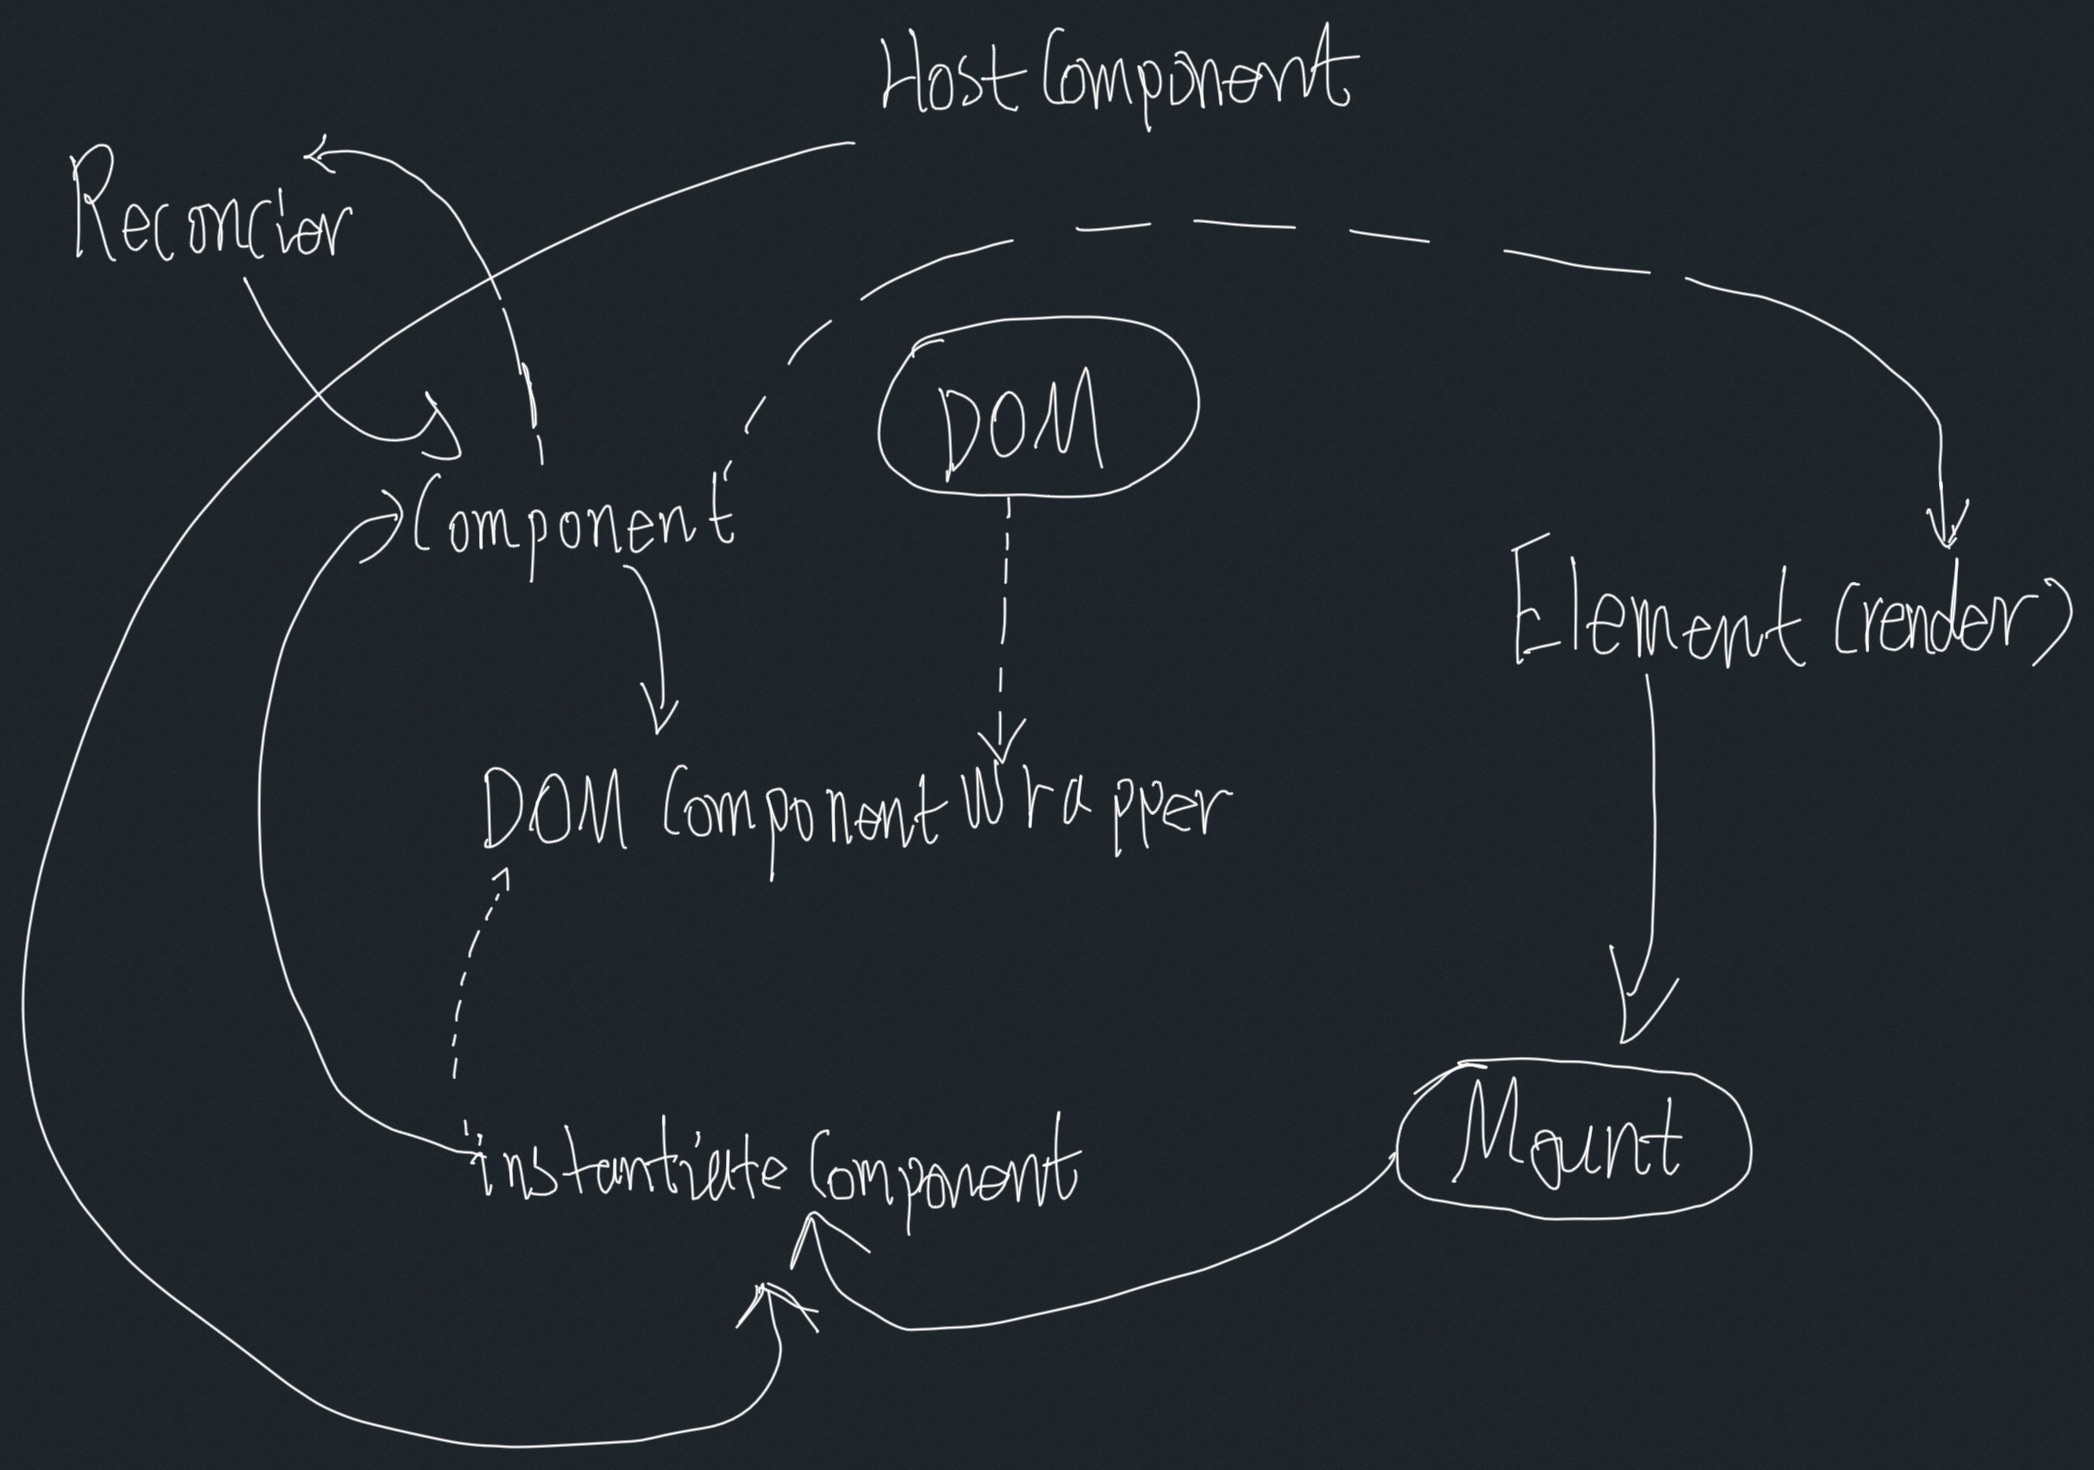 HostComponent
Reconcier
DOM
Component
Element (render)
DOM Component Wrapper
Mount
instantiate Component